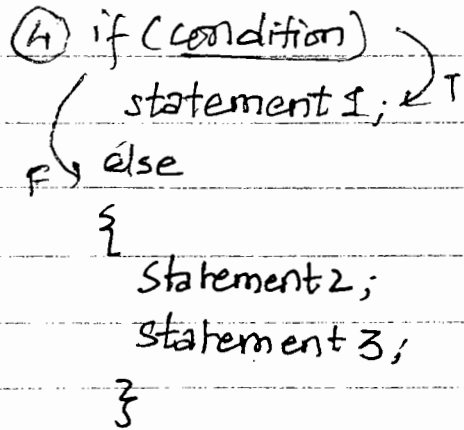 (4) if (condition)
statement 1; T
F else
{
Statement 2;
Statement 3;
}